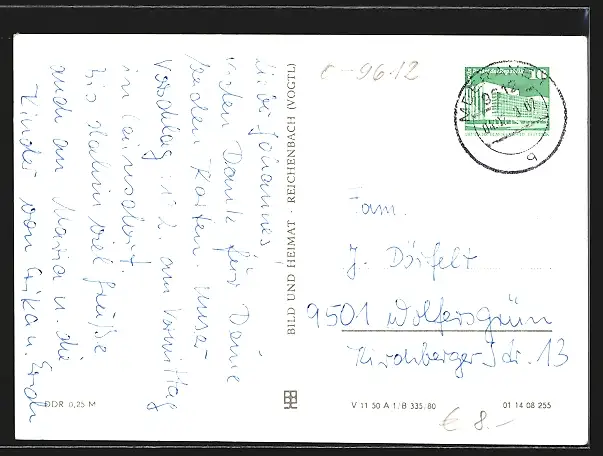 Lieber Johannes!
vielen Dank für Deine
beiden Karten. Unser
Vorschlag: 1. 2. am Vormittag
in Leinsdorf.
Bis dahin viel Grüße
auch an Maria u. die
Kinder von
BILD UND HEIMAT · REICHENBACH (VOGTL)
DDR 0,25 M
c-96.12
10
Fam.
J. Dörfelt
9501 Wolfersgrün
Kirchberger Str. 13
V 11 50 A 1/B 335/80
01 14 08 255
€ 8.-